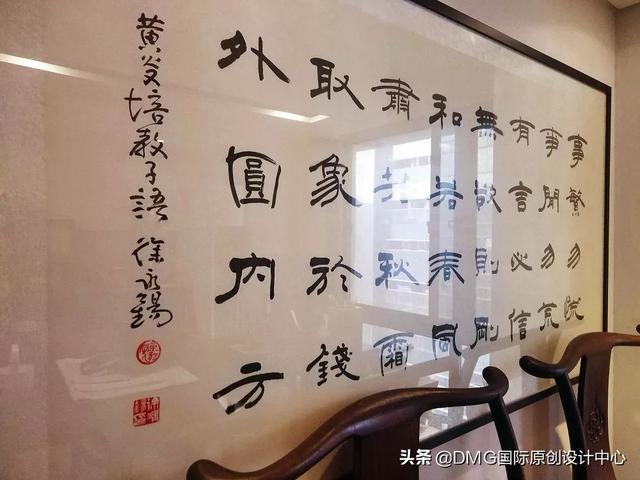 事繁勿慌
事閒勿荒
有言必信
無欲則剛
和若春風
肅若秋霜
取象於錢
外圓内方
黄炎培教子語 徐
頭条 @DMG国际原创设计中心